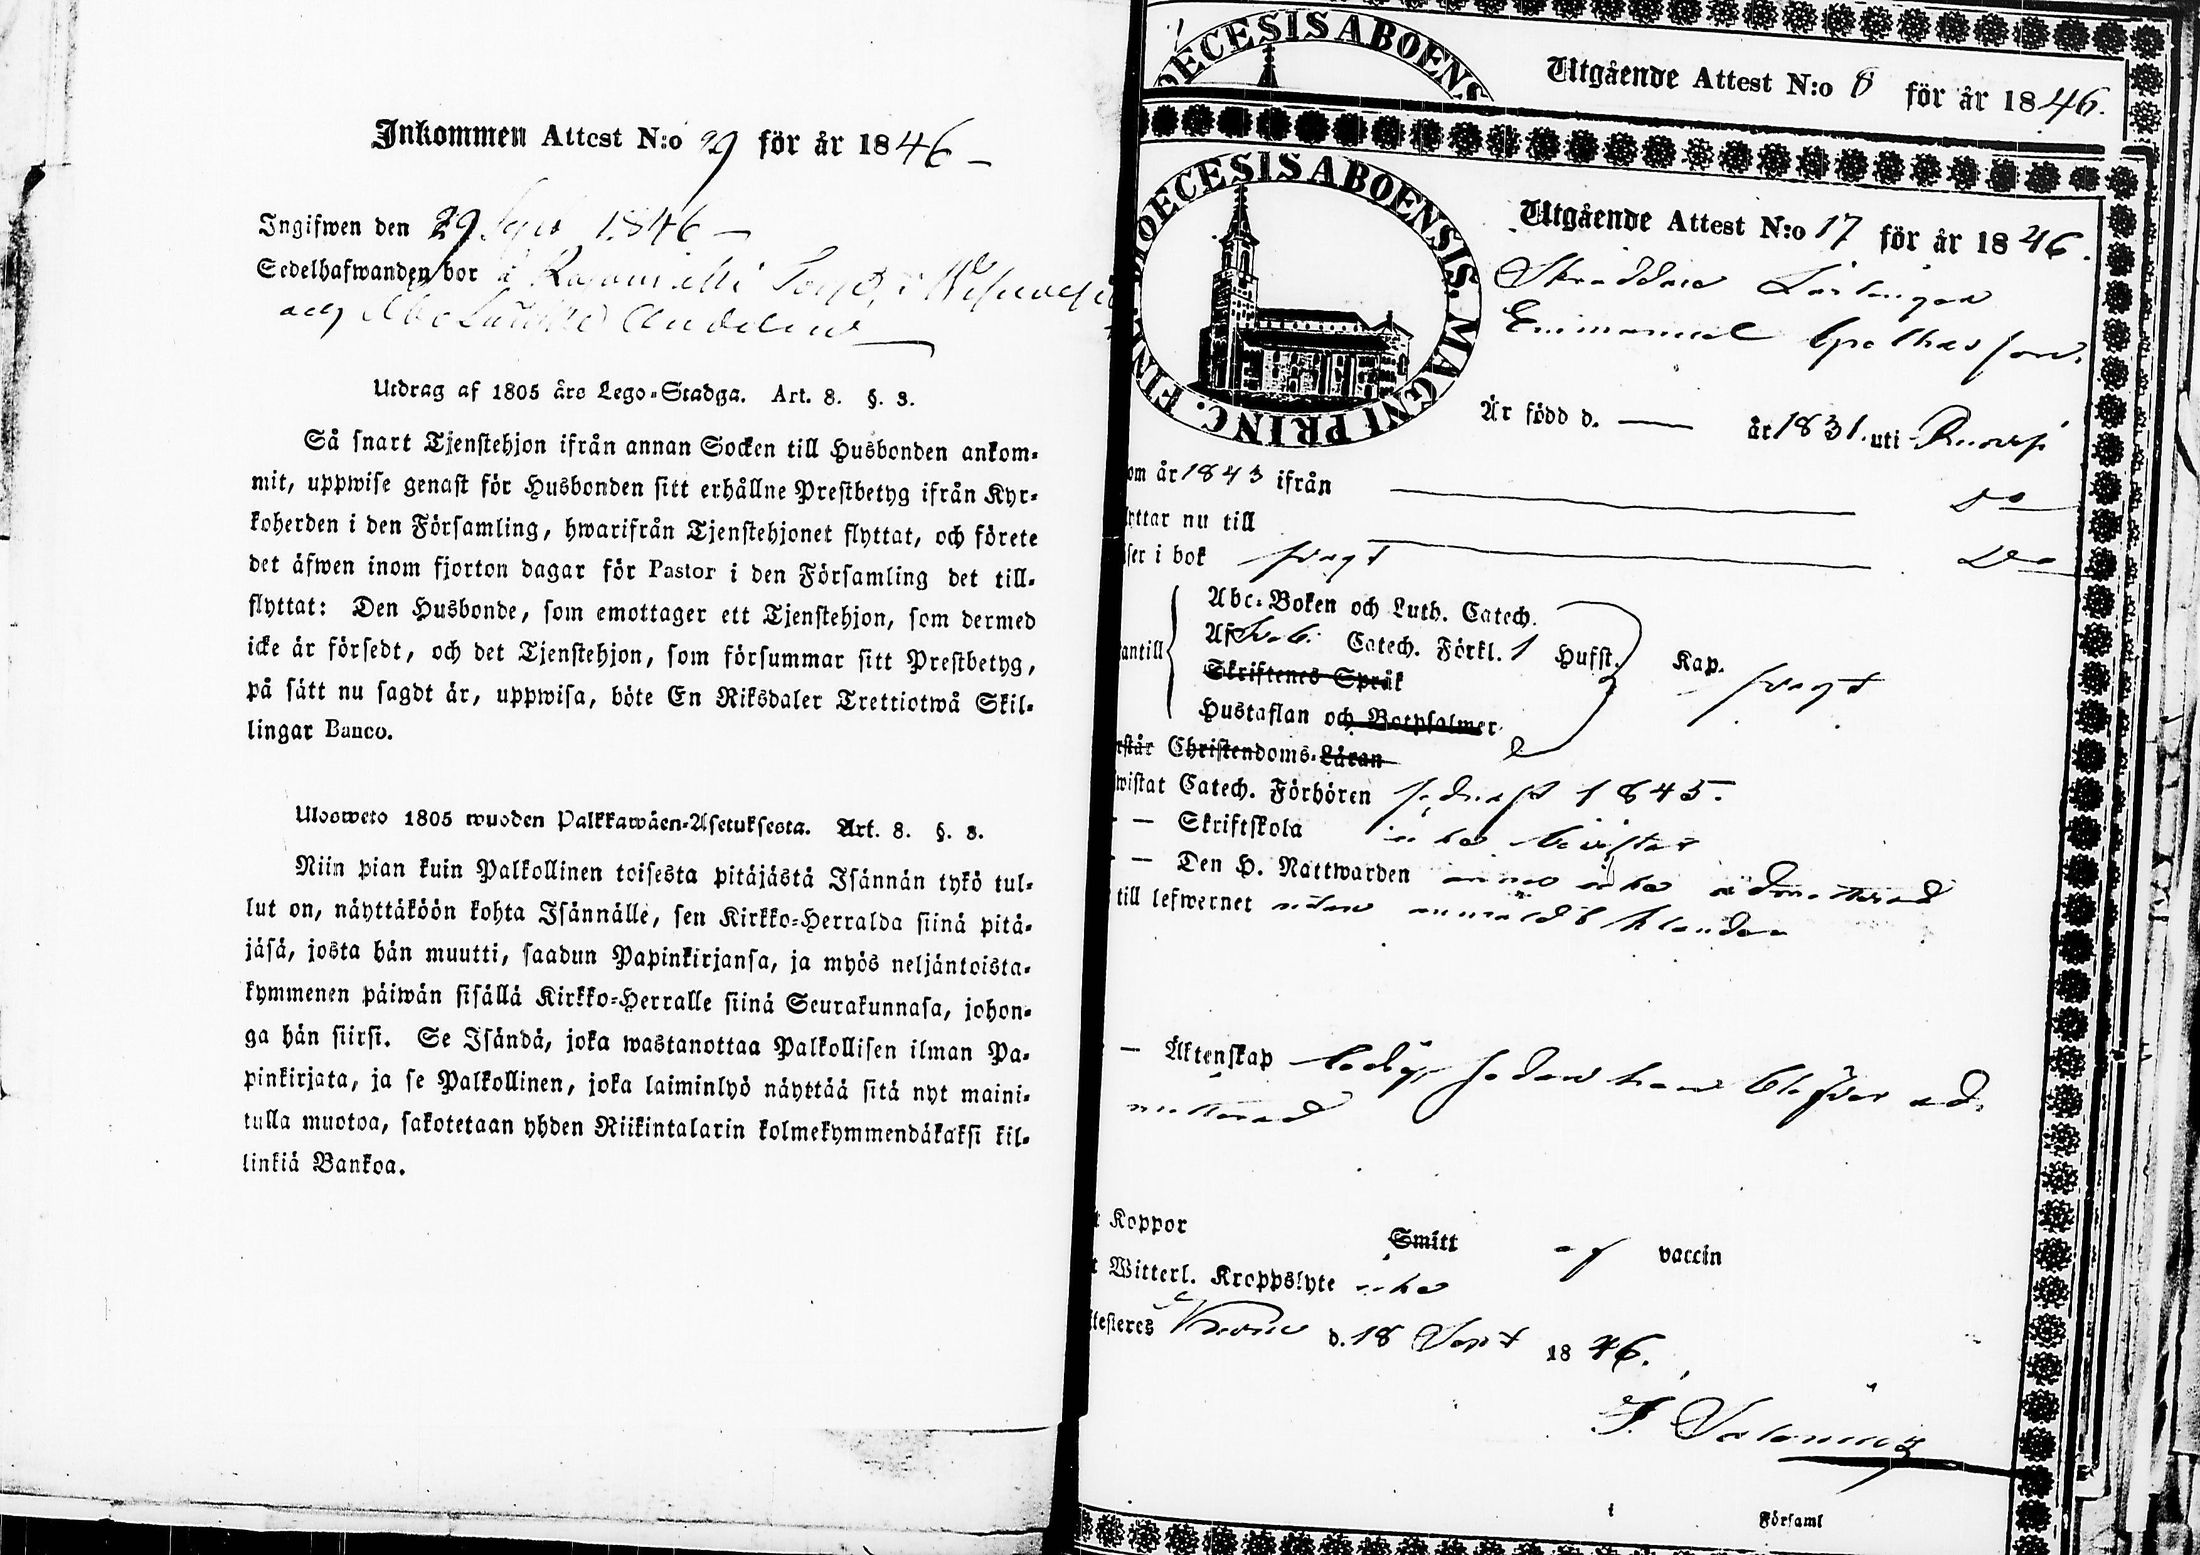 Inkommen Attest N:o 29 för år 1846
Ingifwen den 29 Sept 1846
Sedelhafwanden bor å
Utdrag af 1805 års Lego-Stadga. Art. 8. §. 3.
Så snart Tjenstehjon ifrån annan Socken till Husbonden ankom-
mit, uppwise genast för Husbonden sitt erhållne Prestbetyg ifrån Kyr-
koherden i den Församling, hwarifrån Tjenstehjonet flyttat, och förete
det äfwen inom fjorton dagar för Pastor i den Församling det till-
flyttat: Den Husbonde, som emottager ett Tjenstehjon, som dermed
icke är försedt, och det Tjenstehjon, som försummar sitt Prestbetyg,
på sätt nu sagdt är, uppwisa, böte En Riksdaler Trettiotwå Skil-
lingar Banco.
Ulosweto 1805 wuoden Palkkawäen-Asetuksesta. Art. 8. §. 3.
Niin pian kuin Palkollinen toisesta pitäjästä Isännän tykö tul-
lut on, näyttäköön kohta Isännälle, sen Kirkko-Herralda siinä pitä-
jäsä, josta hän muutti, saadun Papinkirjansa, ja myös neljäntoista-
kymmenen päiwän sisällä Kirkko-Herralle siinä Seurakunnasa, johon-
ga hän siirsi. Se Isändä, joka wastanottaa Palkollisen ilman Pa-
pinkirjata, ja se Palkollinen, joka laiminlyö näyttää sitä nyt maini-
tulla muotoa, sakotetaan yhden Riikintalarin kolmekymmendäkaksi kil-
linkiä Bankoa.
DIOECESIS ABOENSIS
Utgående Attest N:o 8 för år 1846.
DIOECESIS ABOENSIS. MAGNI PRINC. FINL.
Utgående Attest N:o 17 för år 1846.
Skräddare Lärlingen
Emmanuel
Är född d. — år 1831. uti
om år 1843 ifrån Do
yttar nu till Do
ser i bok svagt
Abc-Boken och Luth. Catech.
Af Sveb. Catech. Förkl. 1 Hufst. Kap. svagt
antill
Skriftenes Språk
Hustaflan och Botpsalmer
rstår Christendoms-Läran
wistat Catech. Förhören sednast 1845.
— Skriftskola icke bevistat
— Den H. Nattwarden ännu icke admitterad
till lefwernet utan anmärkt klander
— Äktenskap ledig, sedan han blifver ad-
mitterad
t Koppor Smitt af vaccin
t Witterl. Kroppslyte icke
ttesteres d. 18 Sept 1846.
Församl